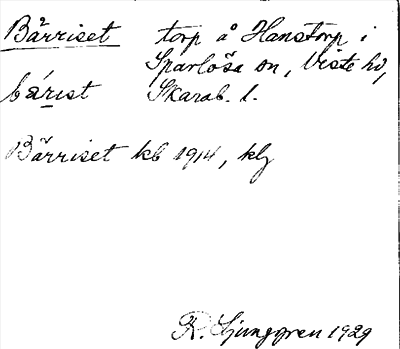 Bärriset torp å Hanstorp i
Sparlösa sn, Viste hd,
bárist Skarab. l.
Bärriset kb 1914, klg
R. Ljunggren 1929